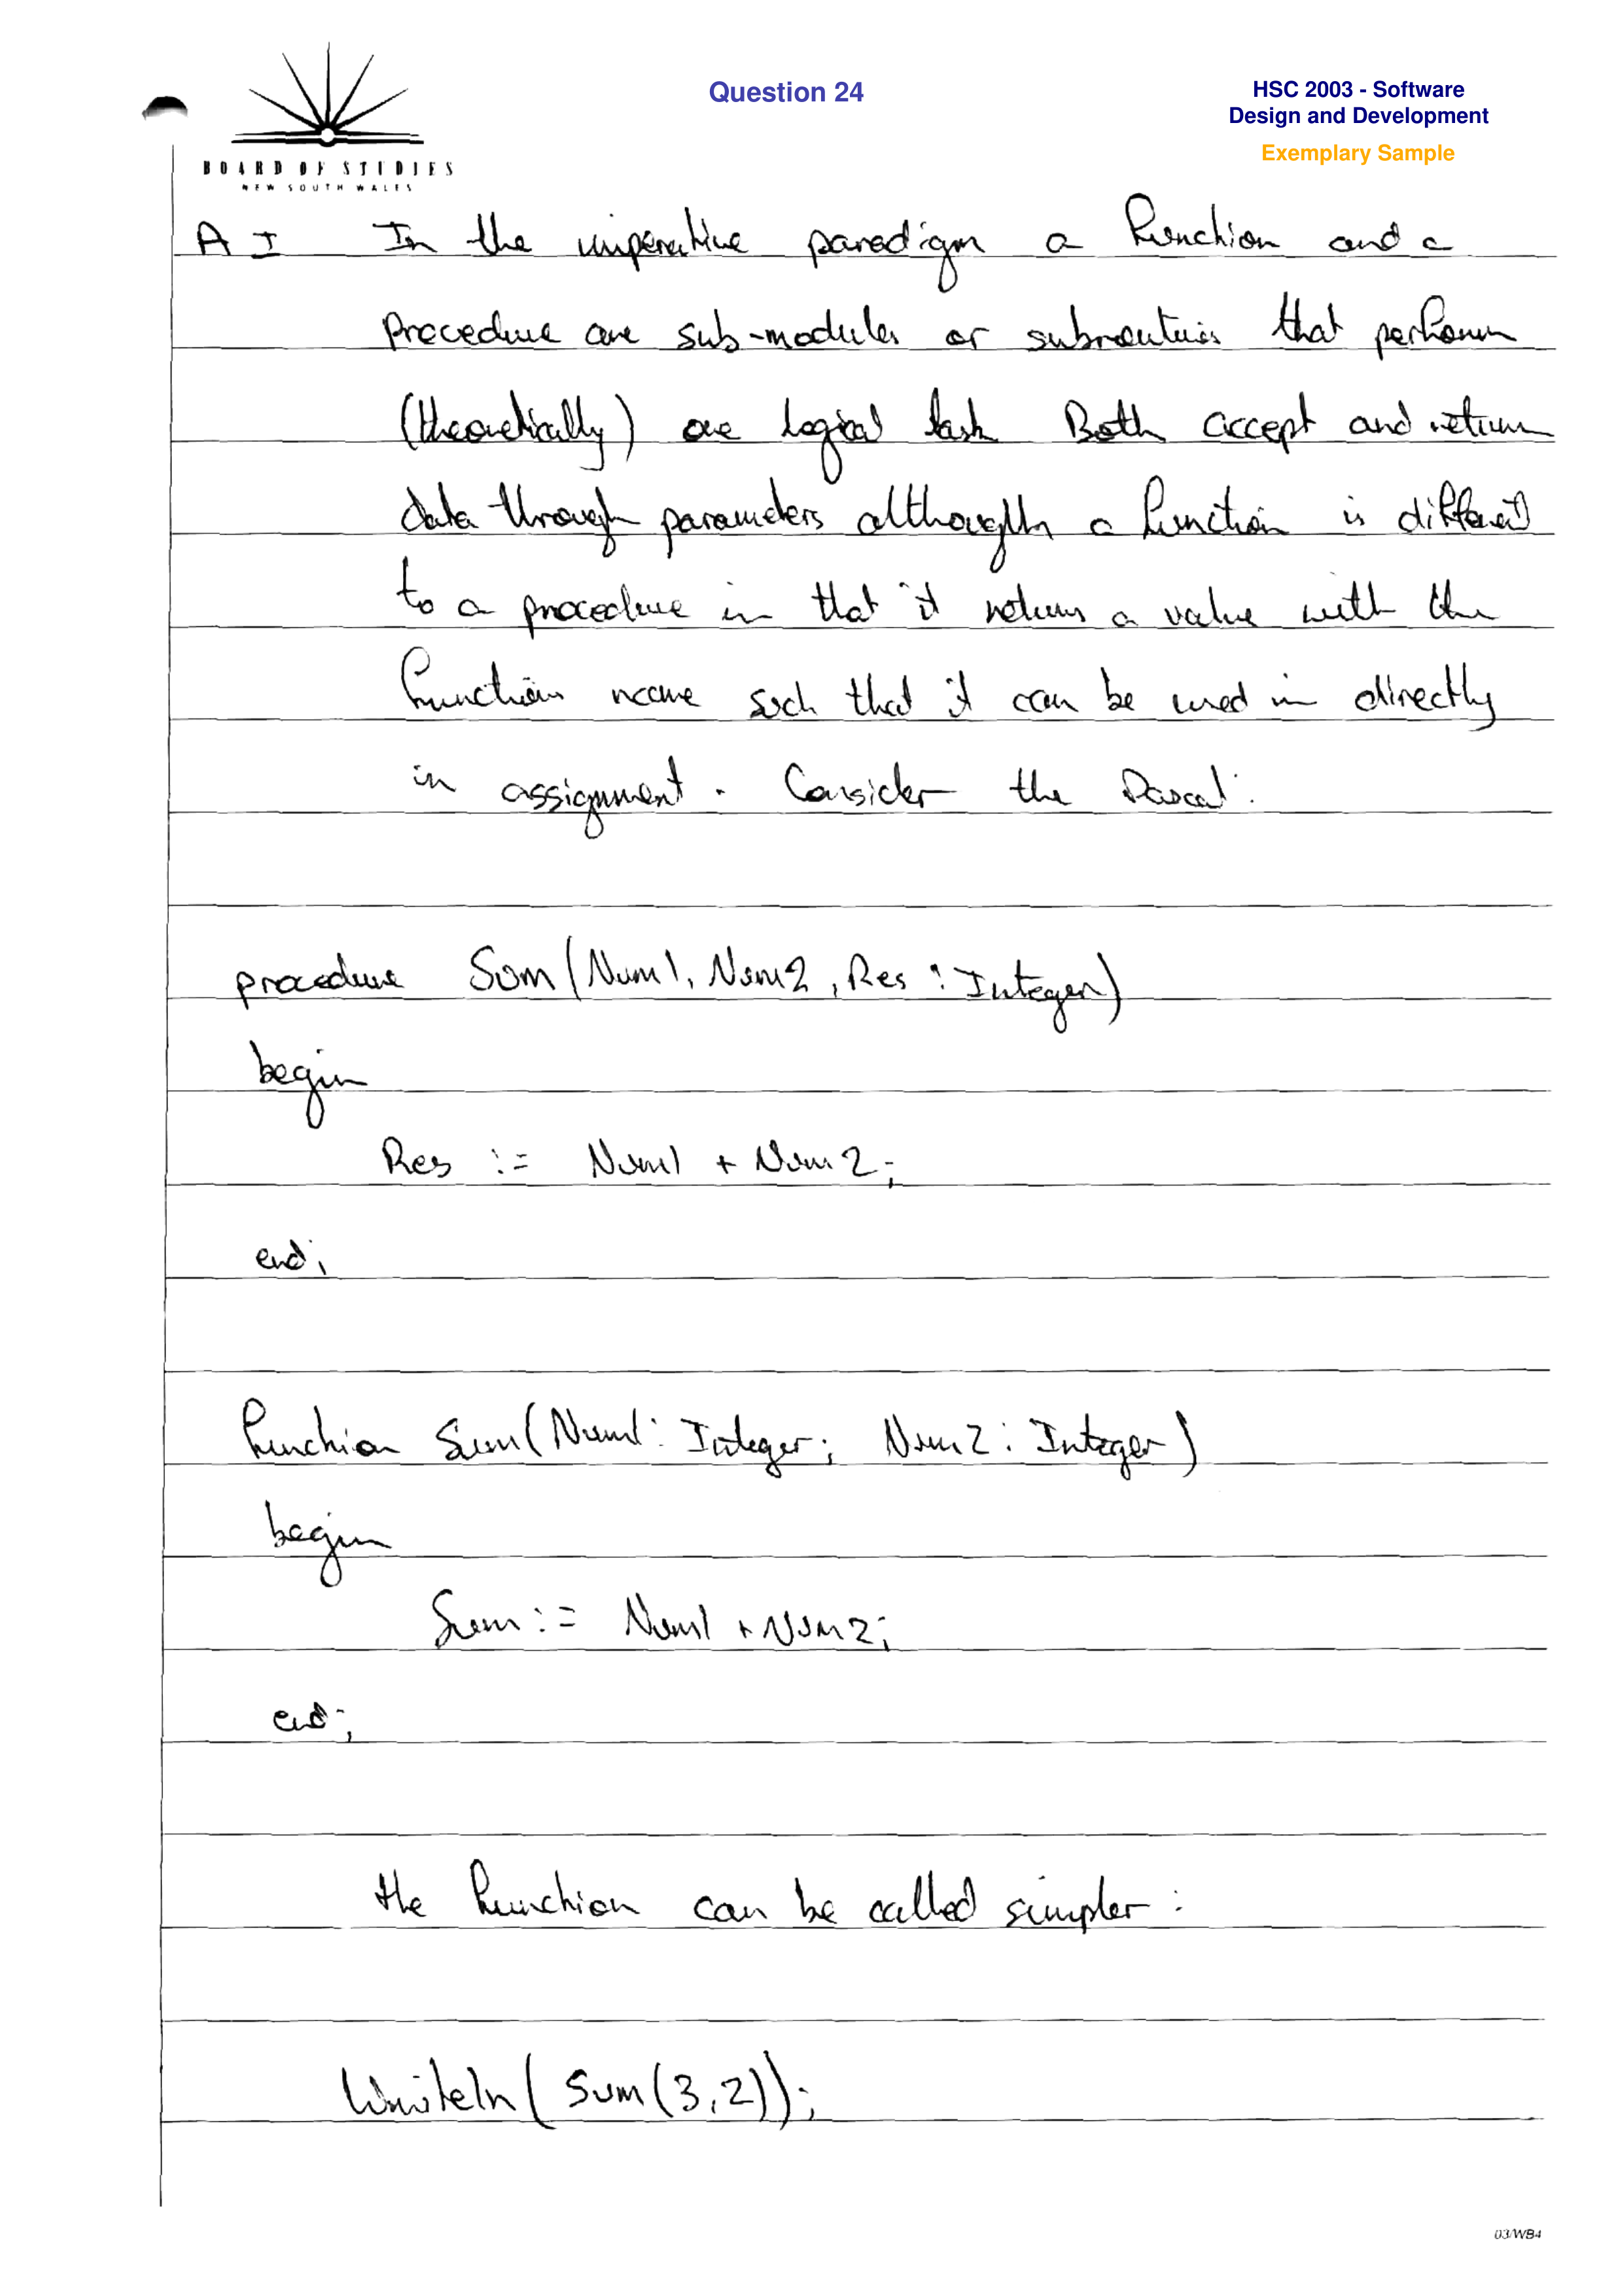 Question 24
HSC 2003 - Software
Design and Development
Exemplary Sample
BOARD OF STUDIES
NEW SOUTH WALES
A I In the imperative paradigm a function and a
Procedure are sub-modules or subroutines that perform
(theoretically) one logical task Both accept and return
data through parameters although a function is different
to a procedure in that it returns a value with the
function name such that it can be used in directly
in assignment. Consider the Pascal:
procedure Sum(Num1, Num2, Res : Integer)
begin
Res := Num1 + Num2;
end;
function Sum(Num1: Integer; Num2: Integer)
begin
Sum:= Num1 + Num2;
end;
the function can be called simpler:
Writeln(Sum(3,2));
03/WB4